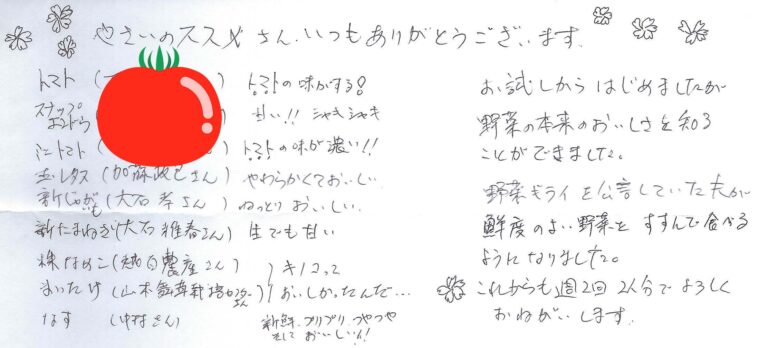 やさいのススメさん、いつもありがとうございます。
トマト ( トマトの味がする!
スナップえんどう 甘い!! シャキシャキ
ミニトマト トマトの味が濃い!!
玉レタス (加藤政己さん) やわらかくておいしい
新じゃがいも (大石 孝さん) ねっとり おいしい.
新たまねぎ (大石 雅春さん) 生でも甘い
株なめこ (農産さん) キノコって
まいたけ (山本舞茸栽培センターさん) おいしかったんだ…
なす (中村さん) 新鮮、プリプリ、つやつや
そして おいしい!!
お試しからはじめましたが
野菜の本来のおいしさを知る
ことができました。
野菜キライを公言していた夫が
鮮度のよい野菜を すすんで食べる
ようになりました。
これからも週2回 2人分でよろしく
おねがいします.